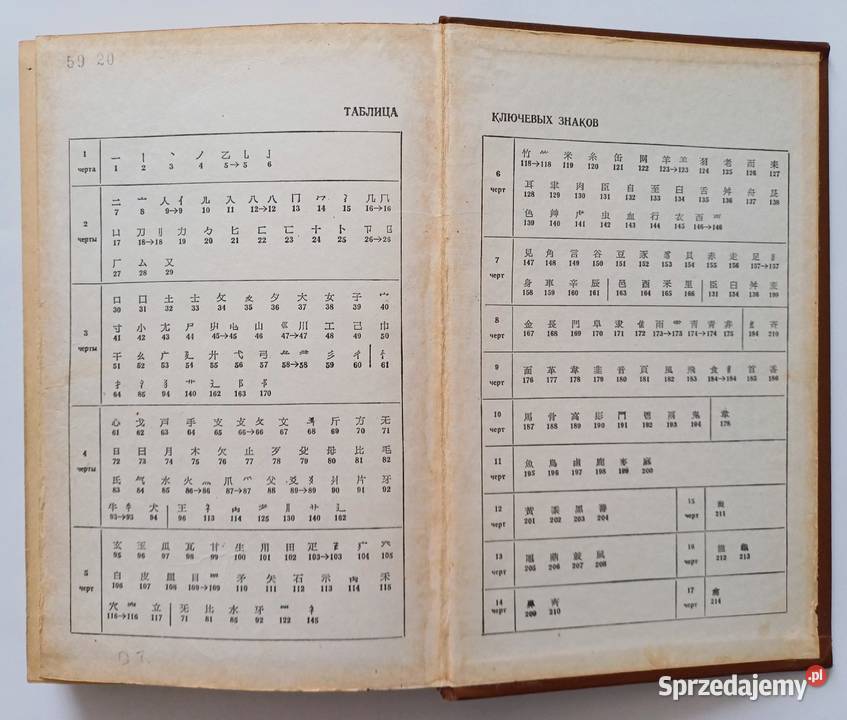 59 20
ТАБЛИЦА
1 черта
一 丨 丶 丿 乙 乚 亅
1 2 3 4 5→5 6
2 черты
二 亠 人 亻 儿 入 八 冂 冖 冫 几
7 8 9→9 10 11 12→12 13 14 15 16→16
口 刀 刂 力 勹 匕 匚 匸 十 卜 卩
17 18→18 19 20 21 22 23 24 25 26→26
厂 厶 又
27 28 29
3 черты
口 囗 土 士 夂 夊 夕 大 女 子 宀
30 31 32 33 34 35 36 37 38 39 40
寸 小 尢 尸 屮 山 巛 川 工 己 巾
41 42 43 44 45→45 46 47→47 48 49 50
干 幺 广 廴 廾 弋 弓 彐 彡 彳
51 52 53 54 55 56 57 58→58 59 60 61
64 85 94 140 162 163 170
4 черты
心 戈 戶 手 支 攴 攵 文 斗 斤 方 无
61 62 63 64 65 66→66 67 68 69 70 71
日 曰 月 木 欠 止 歹 殳 毋 比 毛
72 73 74 75 76 77 78 79 80 81 82
氏 气 水 火 灬 爪 爫 父 爻 爿 片 牙
83 84 85 86→86 87→87 88 89→89 90 91 92
牛 牜 犬 王 礻 禸 耂 艹 辶
93→93 94 96 113 114 125 130 140 162
5 черт
玄 玉 瓜 瓦 甘 生 用 田 疋 疒 癶
95 96 97 98 99 100 101 102 103→103 104 105
白 皮 皿 目 罒 矛 矢 石 示 禸 禾
106 107 108 109→109 110 111 112 113 114 115
穴 立 旡 比 水 牙 罒 衤
116→116 117 71 81 85 92 122 145
КЛЮЧЕВЫХ ЗНАКОВ
6 черт
竹 ⺮ 米 糸 缶 网 羊 羽 老 而 耒
118→118 119 120 121 122 123→123 124 125 126 127
耳 聿 肉 臣 自 至 臼 舌 舛 舟 艮
128 129 130 131 132 133 134 135 136 137 138
色 艸 虍 虫 血 行 衣 西 覀
139 140 141 142 143 144 145 146→146
7 черт
見 角 言 谷 豆 豕 豸 貝 赤 走 足
147 148 149 150 151 152 153 154 155 156 157→157
身 車 辛 辰 邑 酉 釆 里 臣 臼 舛 麦
158 159 160 161 163 164 165 166 131 134 136 199
8 черт
金 長 門 阜 隶 隹 雨 青 非 食 斉
167 168 169 170 171 172 173→173 174→174 175 184 210
9 черт
面 革 韋 韭 音 頁 風 飛 食 首 香
176 177 178 179 180 181 182 183 184→184 185 186
10 черт
馬 骨 高 髟 鬥 鬯 鬲 鬼 韋
187 188 189 190 191 192 193 194 178
11 черт
魚 鳥 鹵 鹿 麥 麻
195 196 197 198 199 200
12 черт
黃 黍 黑 黹
201 202 203 204
15 черт
齒
211
13 черт
黽 鼎 鼓 鼠
205 206 207 208
16 черт
龍 龜
212 213
14 черт
鼻 齊
209 210
17 черт
龠
214
Sprzedajemy.pl